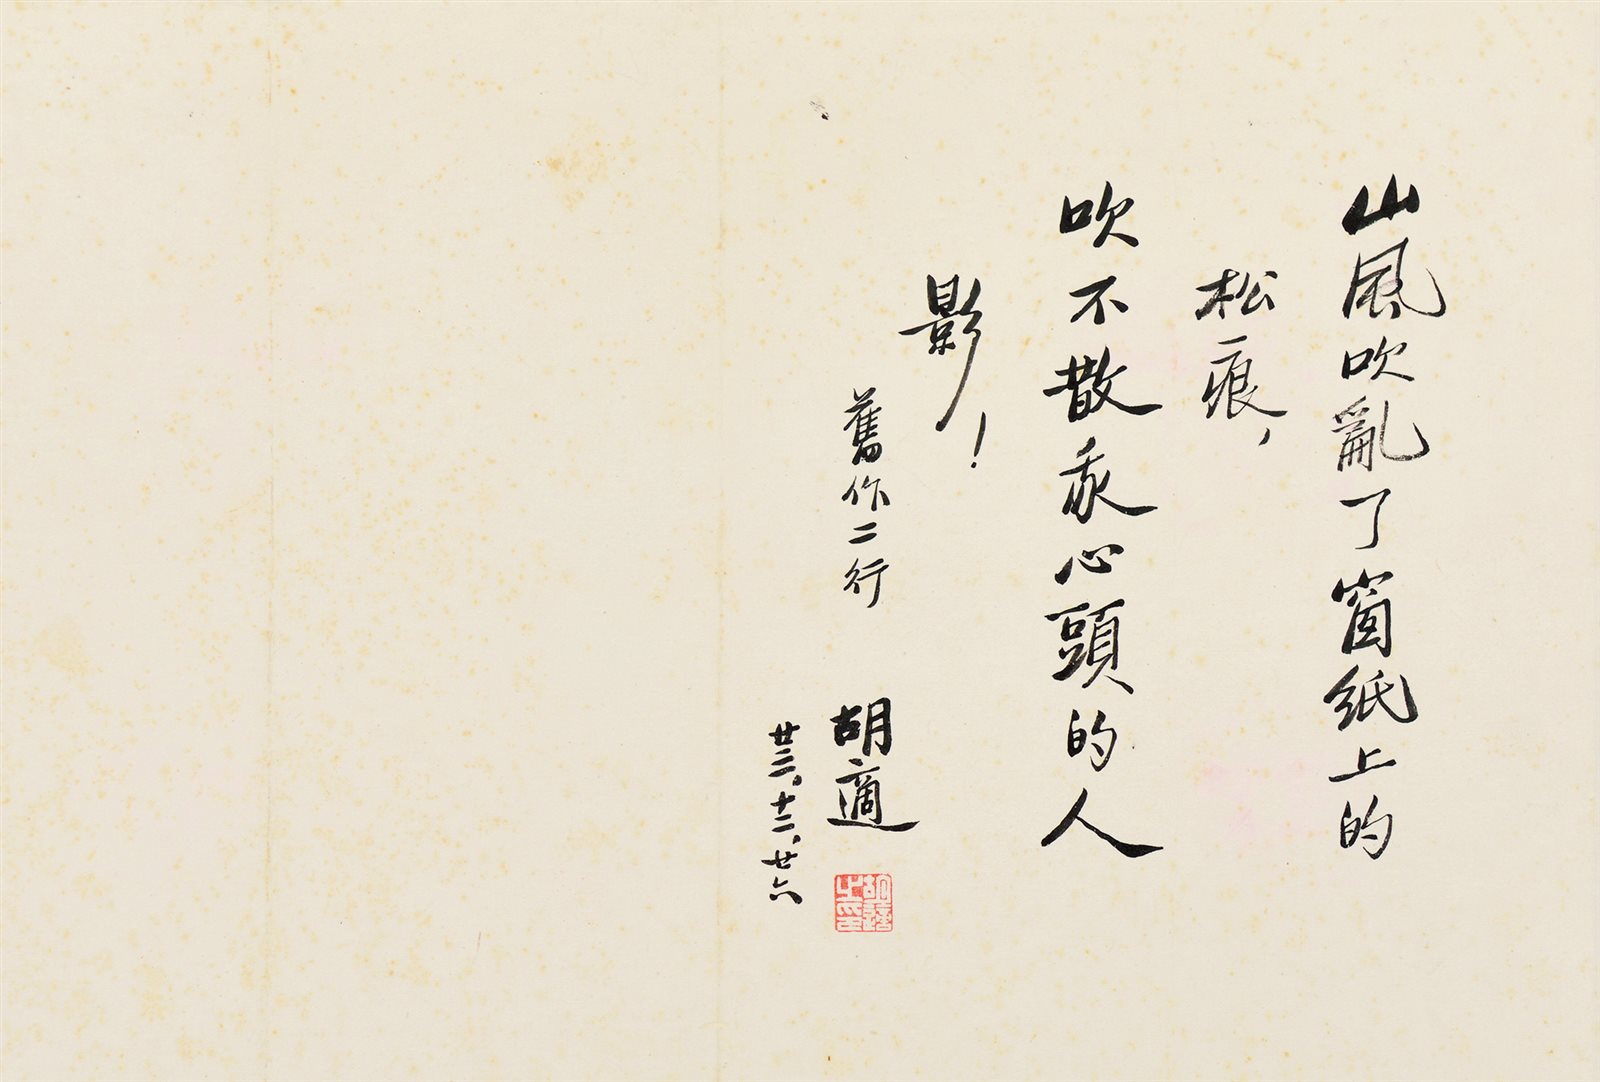 山風吹亂了窗紙上的
松痕，
吹不散我心頭的人
影！
舊作二行
胡適
廿三，十二，廿六
胡適之璽